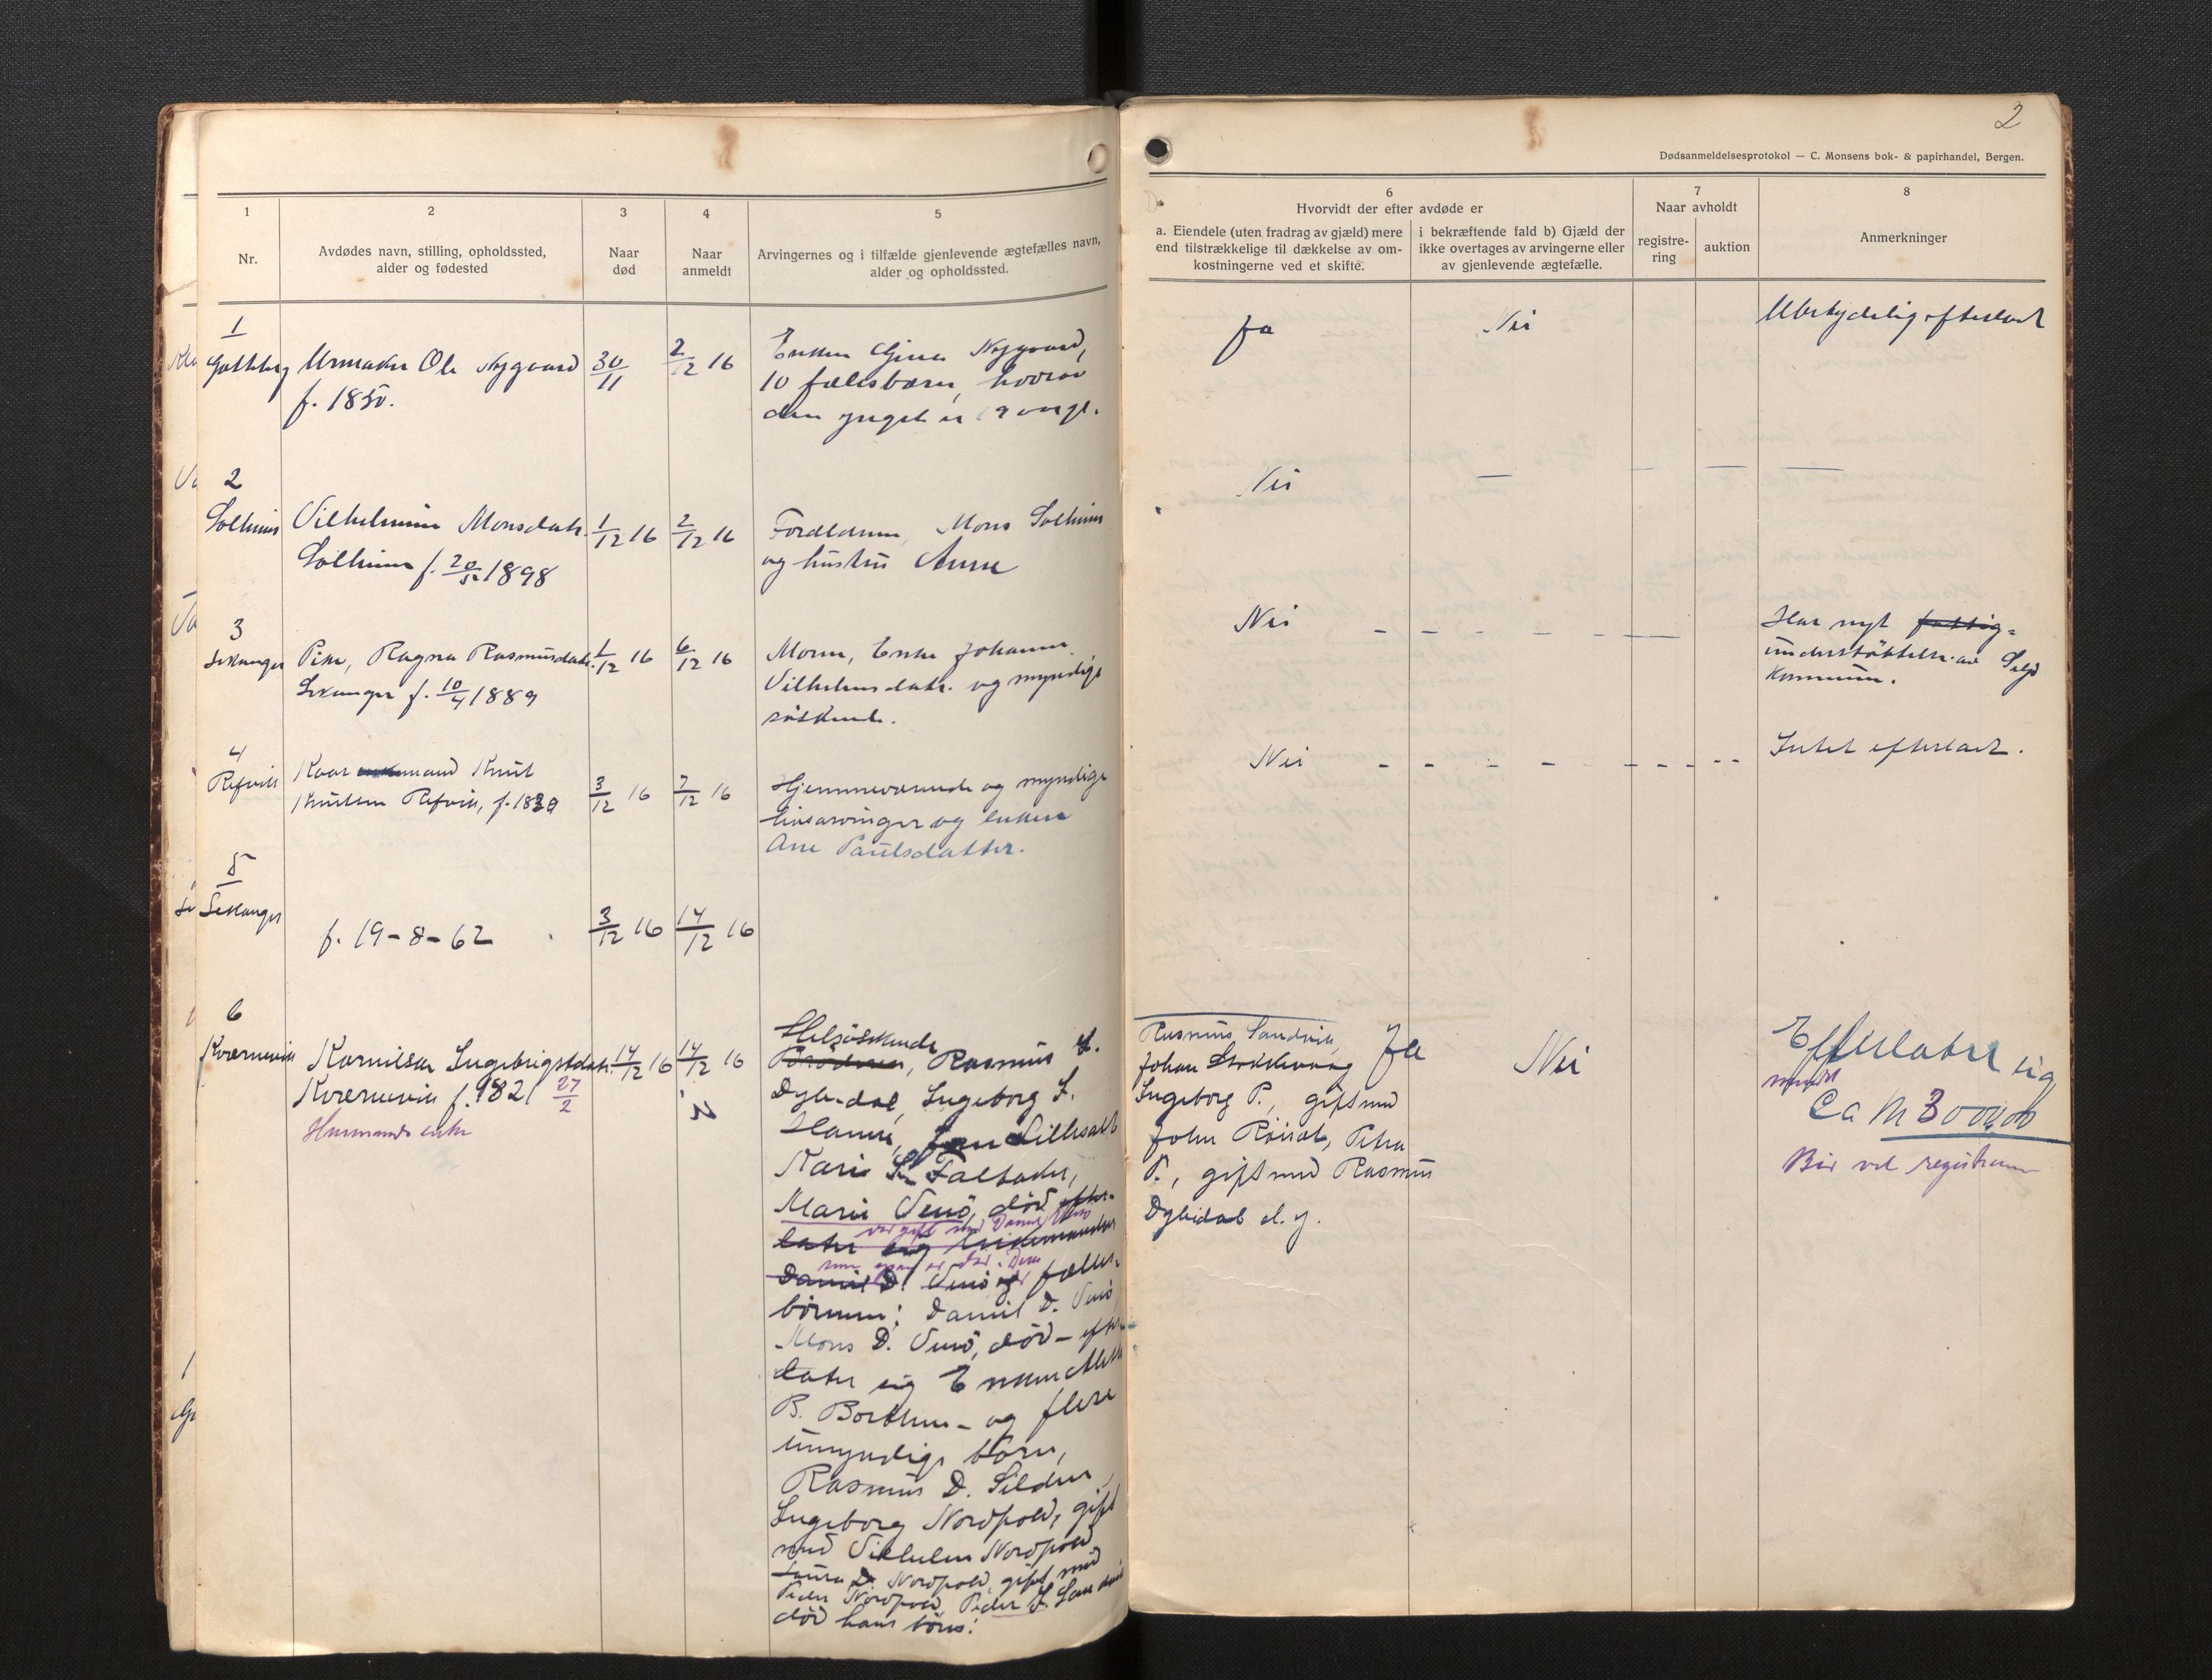 2
Dødsanmeldelsesprotokol — C. Monsens bok- & papirhandel, Bergen.
1
Nr.
2
Avdødes navn, stilling, opholdssted,
alder og fødested
3
Naar
død
4
Naar
anmeldt
5
Arvingernes og i tilfælde gjenlevende ægtefælles navn,
alder og opholdssted.
6
Hvorvidt der efter avdøde er
a. Eiendele (uten fradrag av gjæld) mere
end tilstrækkelige til dækkelse av om-
kostningerne ved et skifte.
i bekræftende fald b) Gjæld der
ikke overtages av arvingerne eller
av gjenlevende ægtefælle.
7
Naar avholdt
registre-
ring
auktion
8
Anmerkninger
1
Urmaker Ole Nygaard
f. 1850.
30/11
2/12 16
Enken Gina Nygaard,
10 fællesbarn, hvorav
den yngst er 19 aar gl.
Ja
Nei
Ubetydelig efterladt
2
Solheim
Vilhelmine Monsdatr.
Solheim f. 20/12 1898
1/12 16
2/12 16
Forældrene, Mons Solheim
og hustru Anne
Nei
—
3
Leikanger
Pike, Ragna Rasmusdatr.
Leikanger f. 10/4 1889
1/12 16
6/12 16
Moren, Enke Johanne
Vilhelmsdatr. og myndige
søskende.
Nei
Har nyt fattig-
understøttelse av Selje
kommune.
4
Refvik
Kaarmand Knut
Knutsen Refvik, f. 1830
3/12 16
7/12 16
Hjemmeværende og myndige
livsarvinger og enken
Ane Paulsdatter.
Nei
Intet efterladt.
5
Leikanger
f. 19-8-62
3/12 16
14/12 16
6
Kvernevik
Kornilia Ingebrigtsdatr.
Kvernevik f. 1821 27/2
Husmands enke
14/12 16
14/12 16
Helsøskende
Brødrene, Rasmus I.
Dybedal, Ingeborg I.
Marie Venø, død efter-
var gift med Daniel Venø
later sig
Daniel D. Venø og fælles-
børnene: Daniel D. Venø
Mons D. Venø, død - efter-
later sig Enken
B. Borthen - og flere
umyndige børn,
Rasmus D. Silden,
Ingeborg Nordpold, gift
med Vilhelm Nordpold
Laura D. Nordpold, gift med
Peder Nordpold, Peder I.
død hans børn:
Rasmus Sandvik,
Johan
Ingeborg P., gift med
John Røisæt, Petra
P., gift med Rasmus
Dybedal d. y.
Ja
Nei
Efterlater sig
mindst
Ca M 3000,00
Bør vel registreres